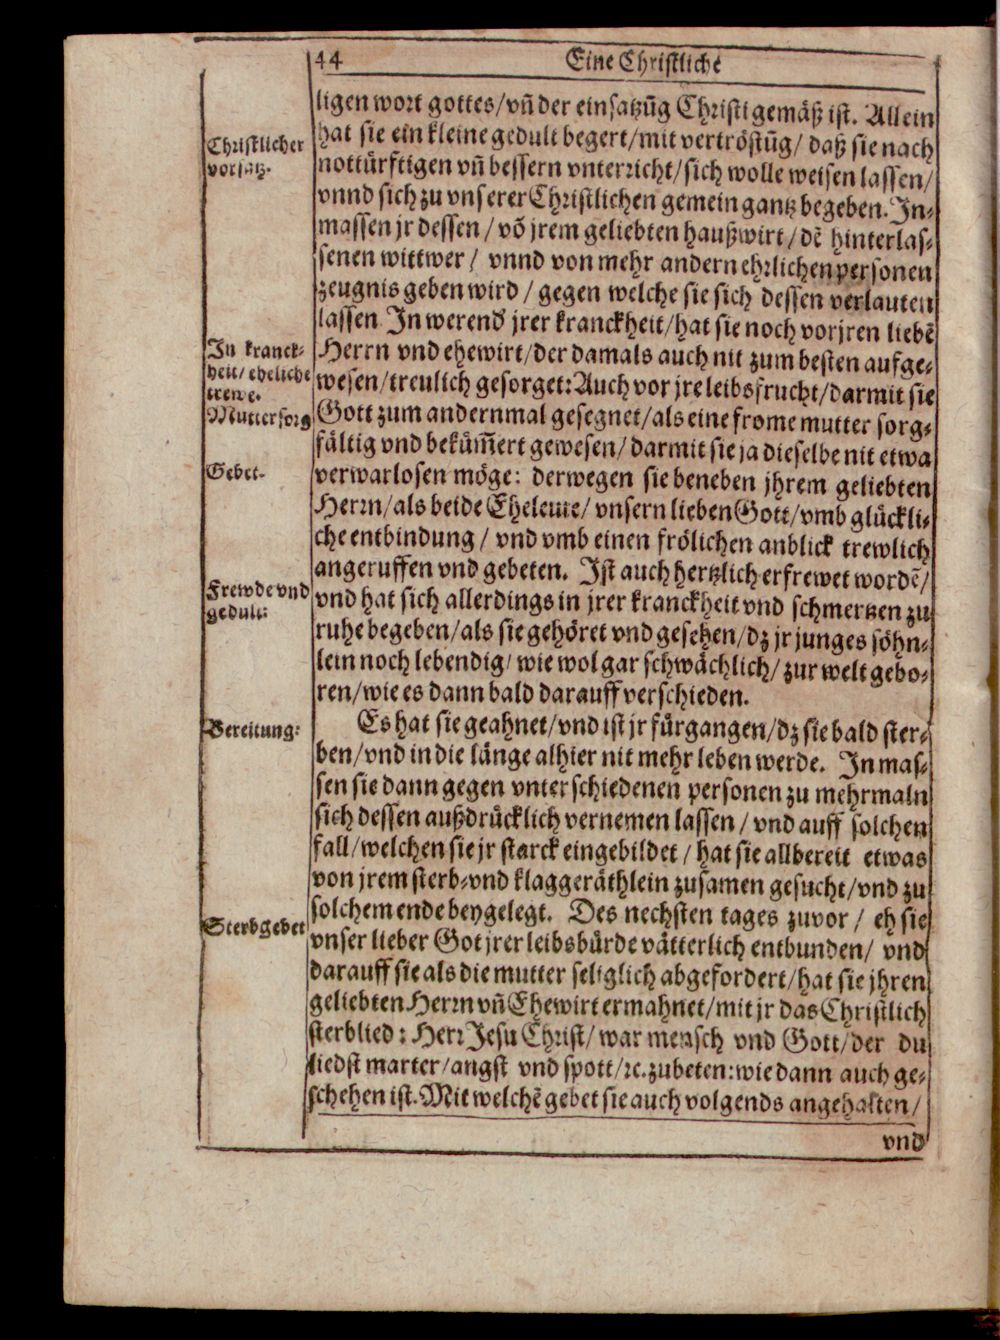 44 Eine Christliche
ligen wort gottes/vñ der einsatzũg Christi gemäß ist. Allein
hat sie ein kleine gedult begert/mit vertröstũg/ daß sie nach
Christlicher
vorsatz.
nottürfftigen vñ bessern vnterricht/sich wolle weisen lassen/
vnnd sich zu vnserer Christlichen gemein gantz begeben. In-
massen jr dessen/ võ jrem geliebten haußwirt/dẽ hinterlas-
senen wittwer/ vnnd von mehr andern ehrlichen personen
zeugnis geben wird/ gegen welche sie sich dessen verlauten
lassen In werend jrer kranckheit/hat sie noch vor jren liebẽ
In kranck-
heit/ eheliche
trewe.
Herrn vnd ehewirt/der damals auch nit zum besten aufge-
wesen/treulich gesorget: Auch vor jre leibsfrucht/darmit sie
Muttersorg
Gott zum andernmal gesegnet/als eine frome mutter sorg-
fältig vnd bekům̃ert gewesen/ darmit sie ja dieselbe nit etwa
Gebet.
verwarlosen möge: derwegen sie beneben jhrem geliebten
Herrn/als beide Eheleute/ vnsern lieben Gott/vmb glückli-
che entbindung/ vnd vmb einen frölichen anblick trewlich
angeruffen vnd gebeten. Ist auch hertzlich erfrewet wordẽ/
Frewde vnd
gedult:
vnd hat sich allerdings in jrer kranckheit vnd schmertzen zu
ruhe begeben/als sie gehöret vnd gesehen/dz jr junges söhn-
lein noch lebendig/ wie wol gar schwächlich/ zur welt gebo-
ren/wie es dann bald darauff verschieden.
Bereitung:
Es hat sie geahnet/vnd ist jr fürgangen/dz sie bald ster-
ben/vnd in die länge alhier nit mehr leben werde. In mas-
sen sie dann gegen vnterschiedenen personen zu mehrmaln
sich dessen außdrücklich vernemen lassen/ vnd auff solchen
fall/welchen sie jr starck eingebildet/ hat sie allbereit etwas
von jrem sterb-vnd klaggeräthlein zusamen gesucht/vnd zu
Sterbgebet
solchem ende beygelegt. Des nechsten tages zuvor/ eh sie
vnser lieber Got jrer leibsbürde vätterlich entbunden/ vnd
darauff sie als die mutter seliglich abgefordert/hat sie jhren
geliebten Herrn vñ Ehewirt ermahnet/mit jr das Christlich
sterblied: Herr Jesu Christ/ war mensch vnd Gott/der du
liedst marter/angst vnd spott/ꝛc. zubeten: wie dann auch ge-
schehen ist. Mit welchẽ gebet sie auch volgends angehalten/
vnd